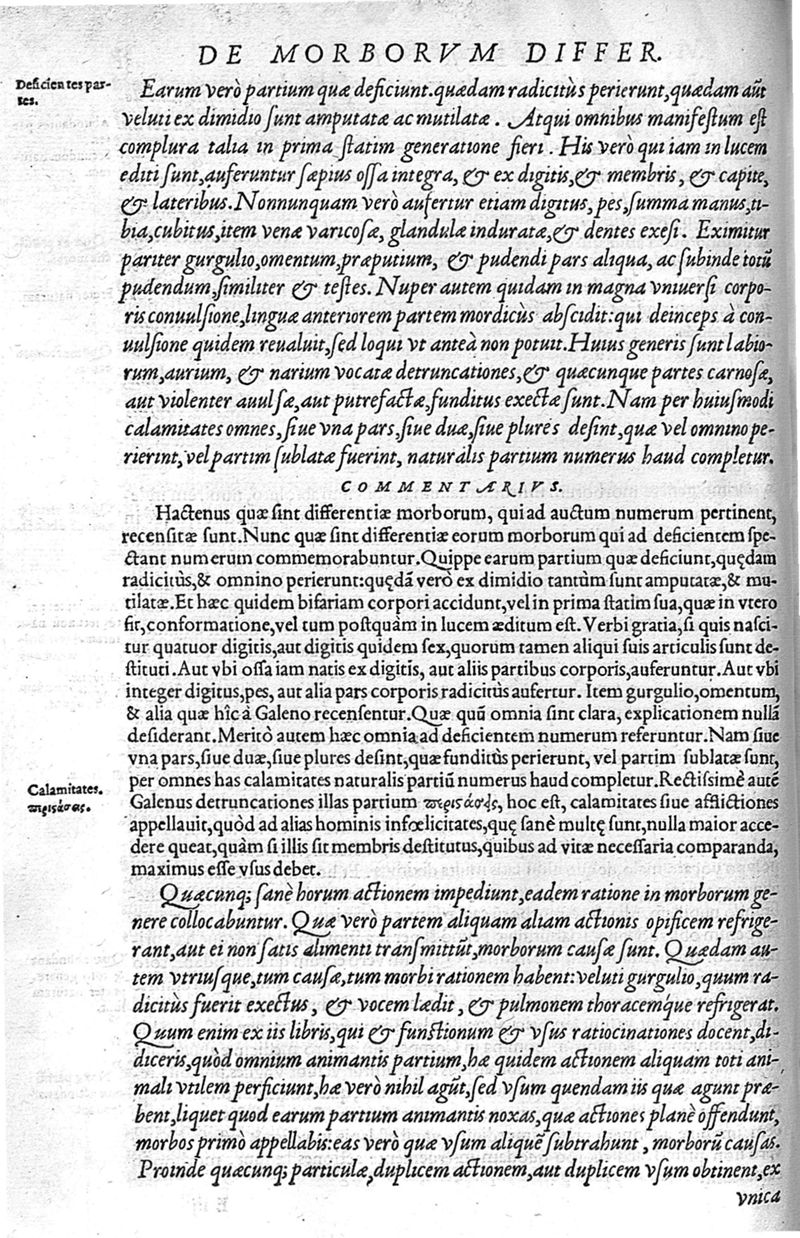 DE MORBORVM DIFFER.
Deficientes par-
tes.
Earum verò partium quæ deficiunt. quædam radicitùs perierunt, quædam aũt
veluti ex dimidio sunt amputatæ ac mutilatæ. Atqui omnibus manifestum est
complura talia in prima statim generatione fieri. His verò qui iam in lucem
editi sunt, auferuntur sæpius ossa integra, & ex digitis, & membris, & capite,
& lateribus. Nonnunquam verò aufertur etiam digitus, pes, summa manus, ti-
bia, cubitus, item venæ varicosæ, glandulæ induratæ, & dentes exesi. Eximitur
pariter gurgulio, omentum, præputium, & pudendi pars aliqua, ac subinde totũ
pudendum, similiter & testes. Nuper autem quidam in magna vniuersi corpo-
ris conuulsione, linguæ anteriorem partem mordicùs abscidit: qui deinceps à con-
uulsione quidem reualuit, sed loqui vt anteà non potuit. Huius generis sunt labio-
rum, aurium, & narium vocatæ detruncationes, & quæcunque partes carnosæ,
aut violenter auulsæ, aut putrefactæ, funditus exectæ sunt. Nam per huiusmodi
calamitates omnes, siue vna pars, siue duæ, siue plures desint, quæ vel omnino pe-
rierint, vel partim sublatæ fuerint, naturalis partium numerus haud completur.
COMMENTARIVS.
Hactenus quæ sint differentiæ morborum, qui ad auctum numerum pertinent,
recensitæ sunt. Nunc quæ sint differentiæ eorum morborum qui ad deficientem spe-
ctant numerum commemorabuntur. Quippe earum partium quæ deficiunt, quędam
radicitùs, & omnino perierunt: quędã verò ex dimidio tantùm sunt amputatæ, & mu-
tilatæ. Et hæc quidem bifariam corpori accidunt, vel in prima statim sua, quæ in vtero
fit, conformatione, vel tum postquàm in lucem æditum est. Verbi gratia, si quis nasci-
tur quatuor digitis, aut digitis quidem sex, quorum tamen aliqui suis articulis sunt de-
stituti. Aut vbi ossa iam natis ex digitis, aut aliis partibus corporis, auferuntur. Aut vbi
integer digitus, pes, aut alia pars corporis radicitùs aufertur. Item gurgulio, omentum,
& alia quæ hîc à Galeno recensentur. Quæ quũ omnia sint clara, explicationem nullã
desiderant. Meritò autem hæc omnia ad deficientem numerum referuntur. Nam siue
vna pars, siue duæ, siue plures desint, quæ funditùs perierunt, vel partim sublatæ sunt,
per omnes has calamitates naturalis partiũ numerus haud completur. Rectissimè autẽ
Calamitates.
πηρώσεις.
Galenus detruncationes illas partium πηρώσεις, hoc est, calamitates siue afflictiones
appellauit, quòd ad alias hominis infœlicitates, quę sanè multę sunt, nulla maior acce-
dere queat, quàm si illis sit membris destitutus, quibus ad vitæ necessaria comparanda,
maximus esse vsus debet.
Quæcunq; sanè horum actionem impediunt, eadem ratione in morborum ge-
nere collocabuntur. Quæ verò partem aliquam aliam actionis opificem refrige-
rant, aut ei non satis alimenti transmittũt, morborum causæ sunt. Quædam au-
tem vtriusque, tum causæ, tum morbi rationem habent: veluti gurgulio, quum ra-
dicitùs fuerit exectus, & vocem lædit, & pulmonem thoracemq́ue refrigerat.
Quum enim ex iis libris, qui & functionum & vsus ratiocinationes docent, di-
diceris, quòd omnium animantis partium, hæ quidem actionem aliquam toti ani-
mali vtilem perficiunt, hæ verò nihil agũt, sed vsum quendam iis quæ agunt præ-
bent, liquet quod earum partium animantis noxas, quæ actiones planè offendunt,
morbos primò appellabis: eas verò quæ vsum aliquẽ subtrahunt, morborũ causas.
Proinde quæcunq; particulæ, duplicem actionem, aut duplicem vsum obtinent, ex
vnica